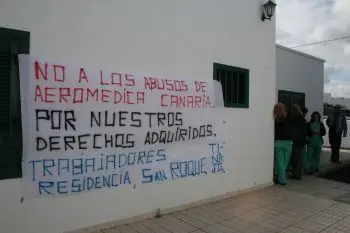 NO A LOS ABUSOS DE
AEROMEDICA CANARIA.
POR NUESTROS
DERECHOS ADQUIRIDOS.
TRABAJADORES
RESIDENCIA SAN ROQUE